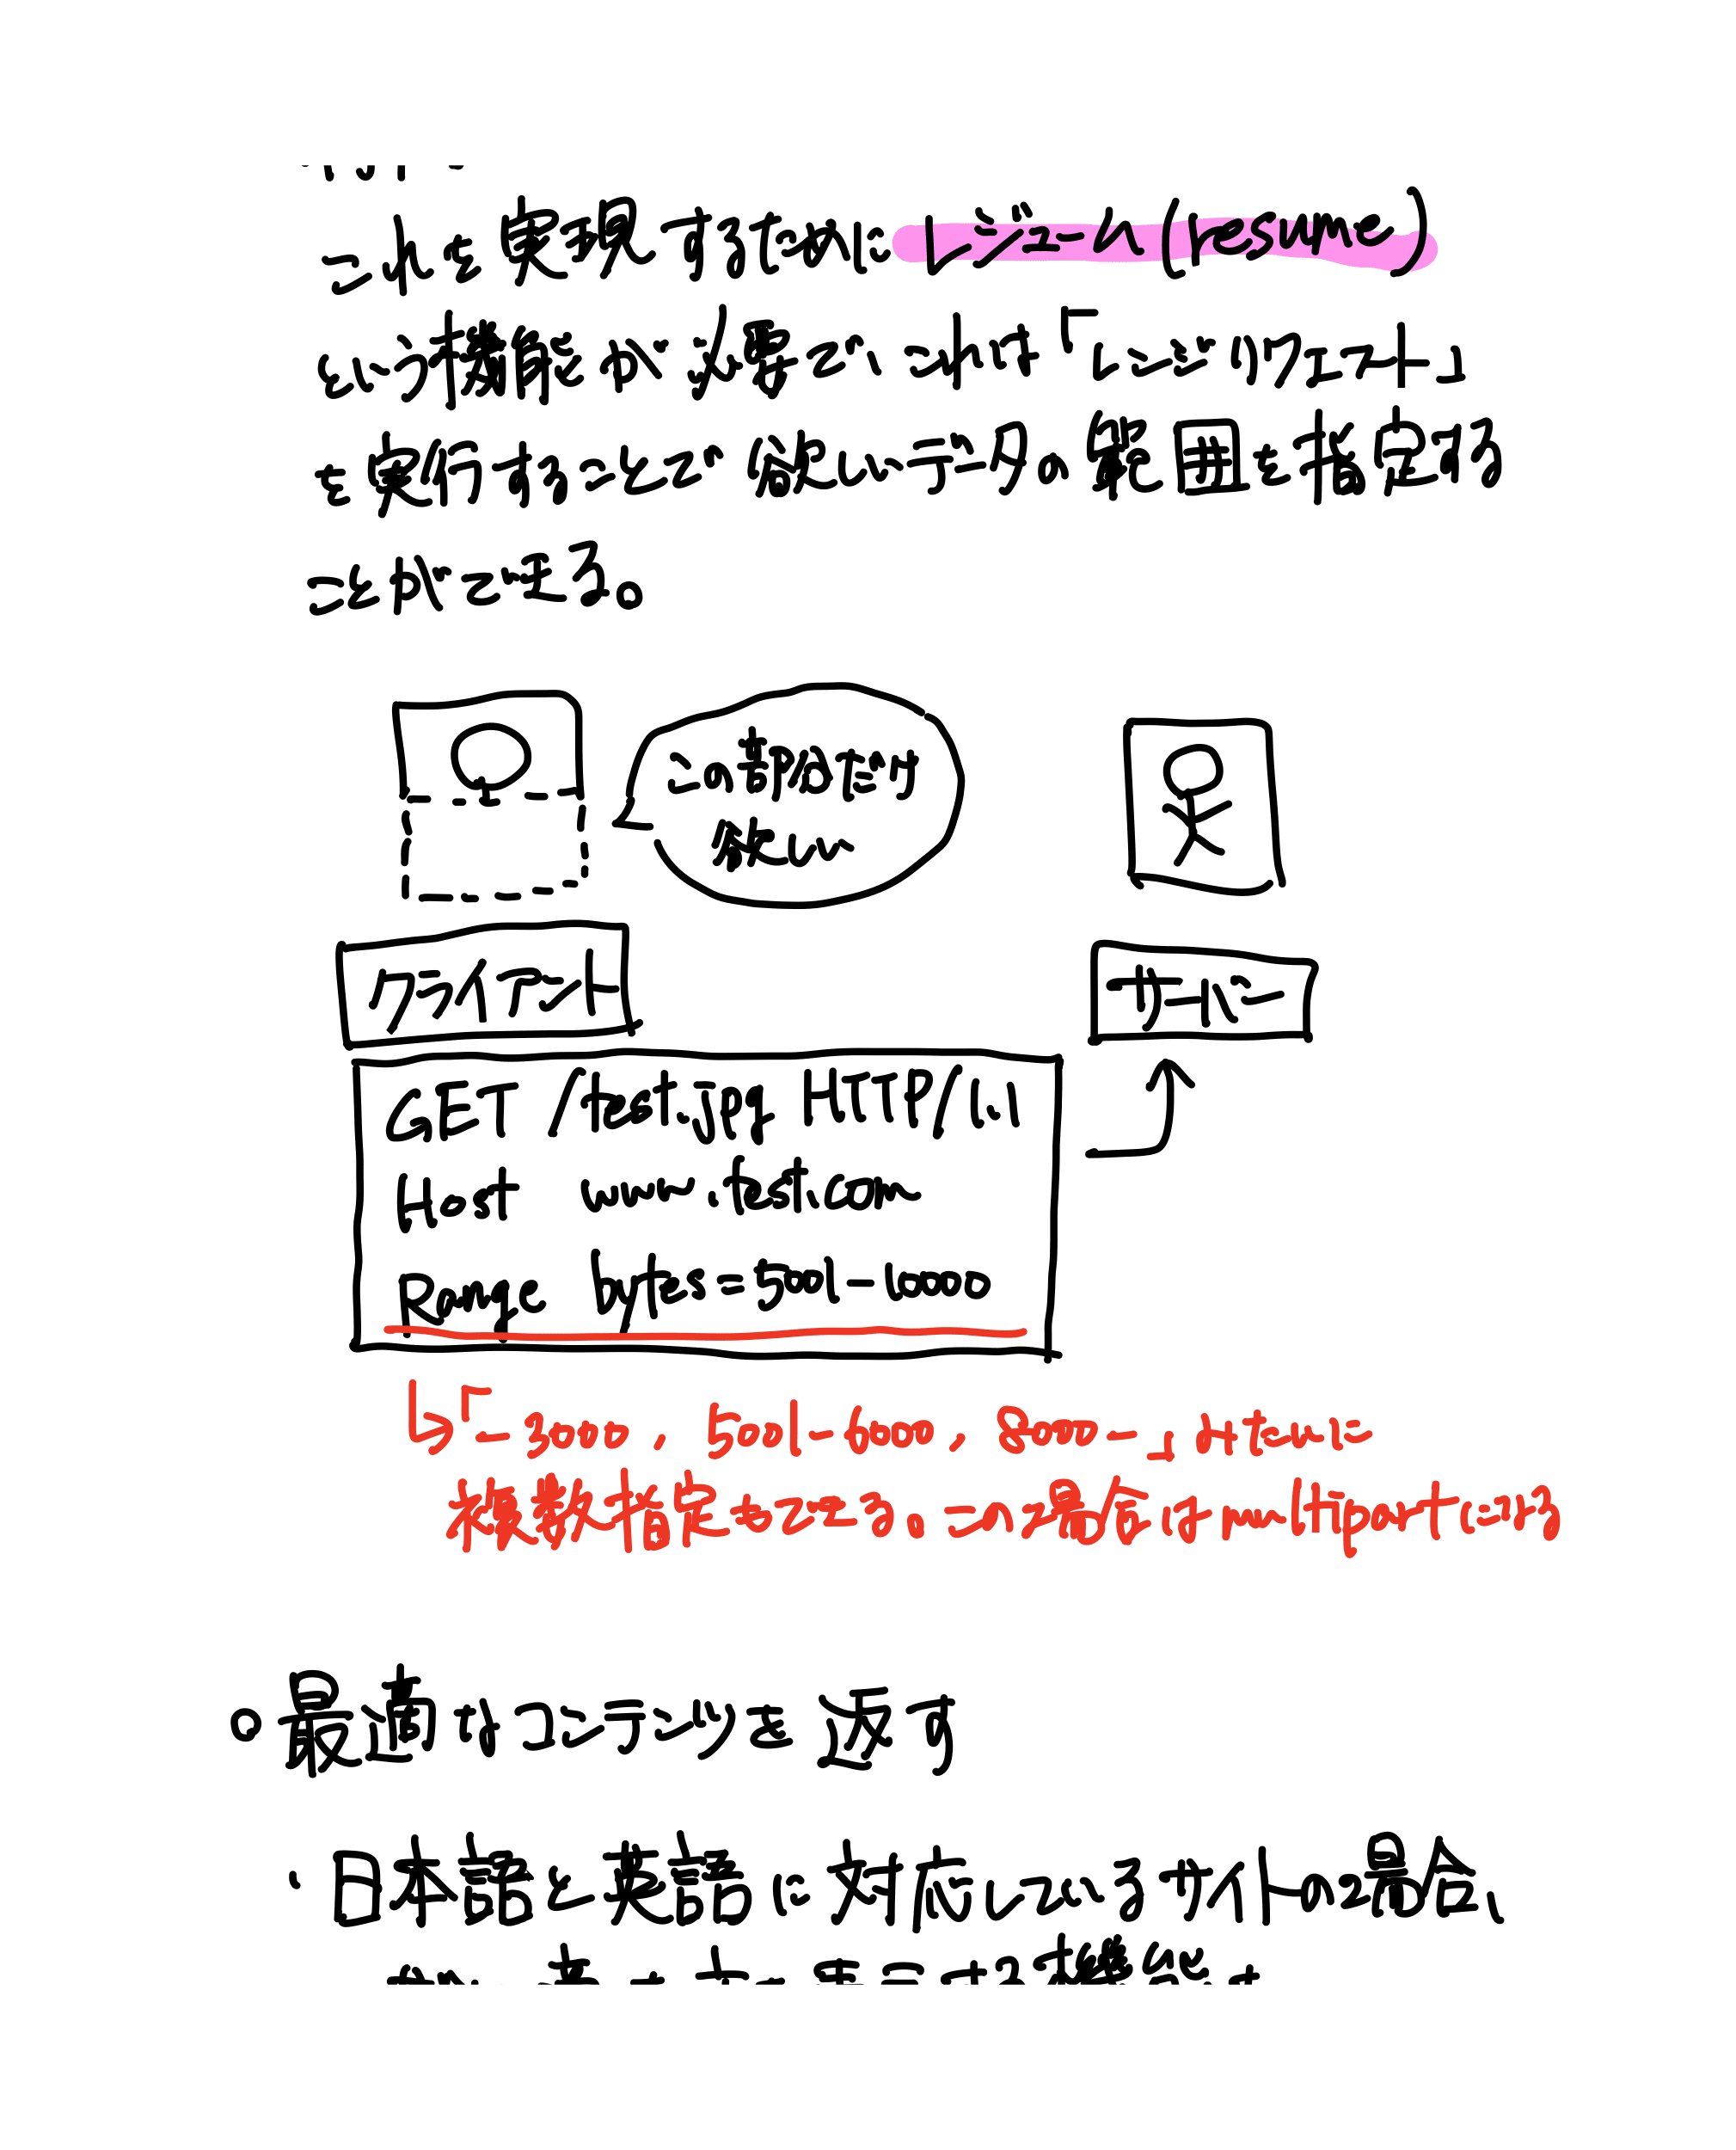 これを実現するためにレジューム(resume)
という機能が必要で、これは「レンジリクエスト」
を実行することで欲しいデータの範囲を指定する
ことができる。
この部分だけ
欲しい
クライアント
サーバー
GET /test.jpg HTTP/1.1
Host www.test.com
Range bytes=5001-10000
↳「-3000, 5001-6000, 8000-」みたいに
複数指定もできる。この場合はmultipartになる
○最適なコンテンツを返す
・日本語と英語に対応しているサイトの場合、